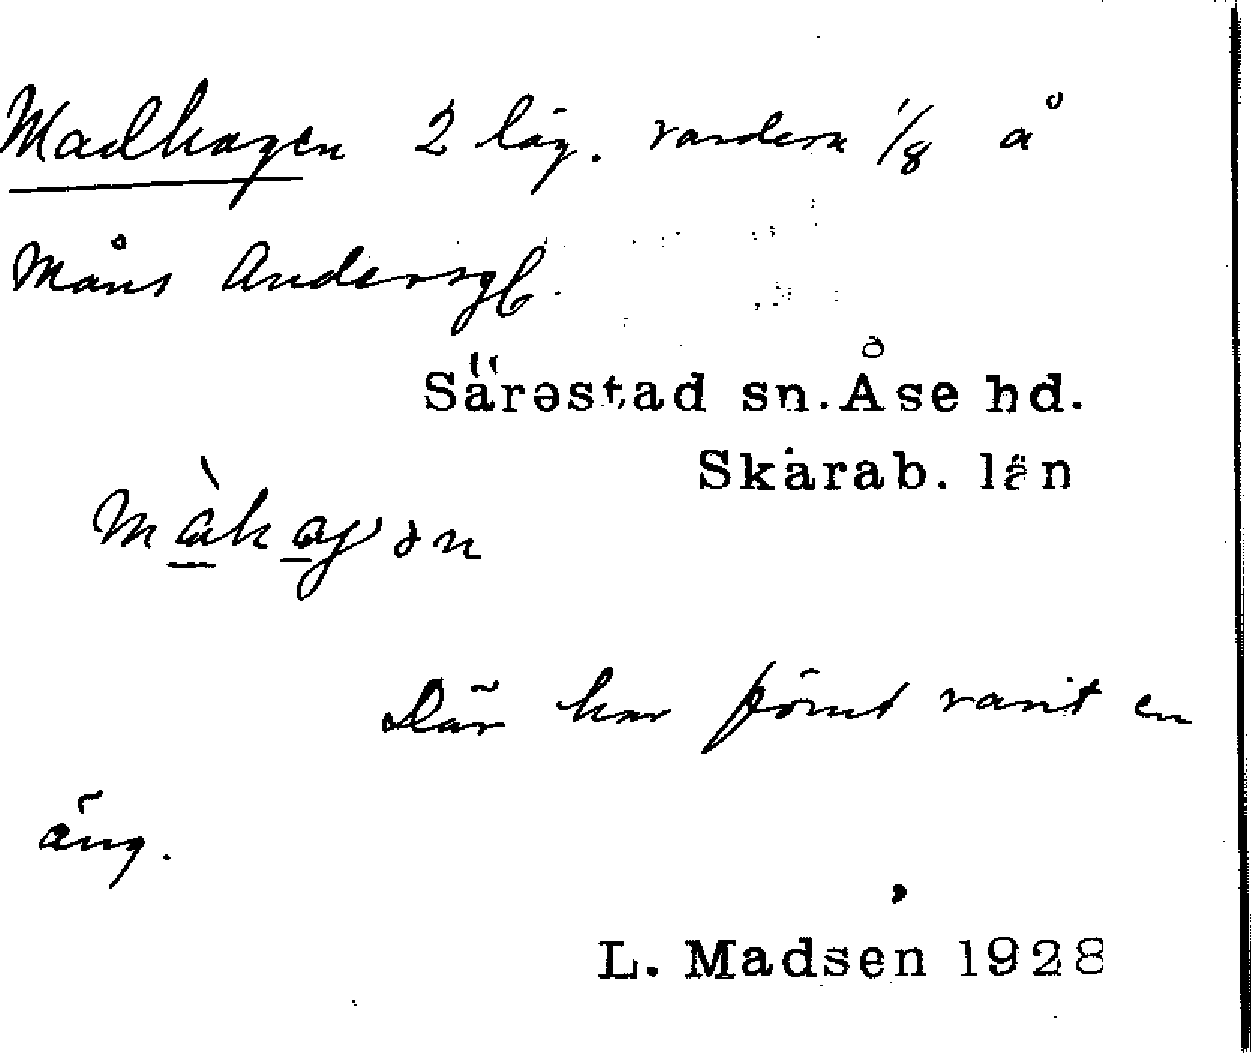 Madhagen 2 läg. vardera 1/8 å
Måns Andersgb.
Särestad sn. Åse hd.
Skarab. län
màhagən
Där har förut varit en
äng.
L. Madsen 1928